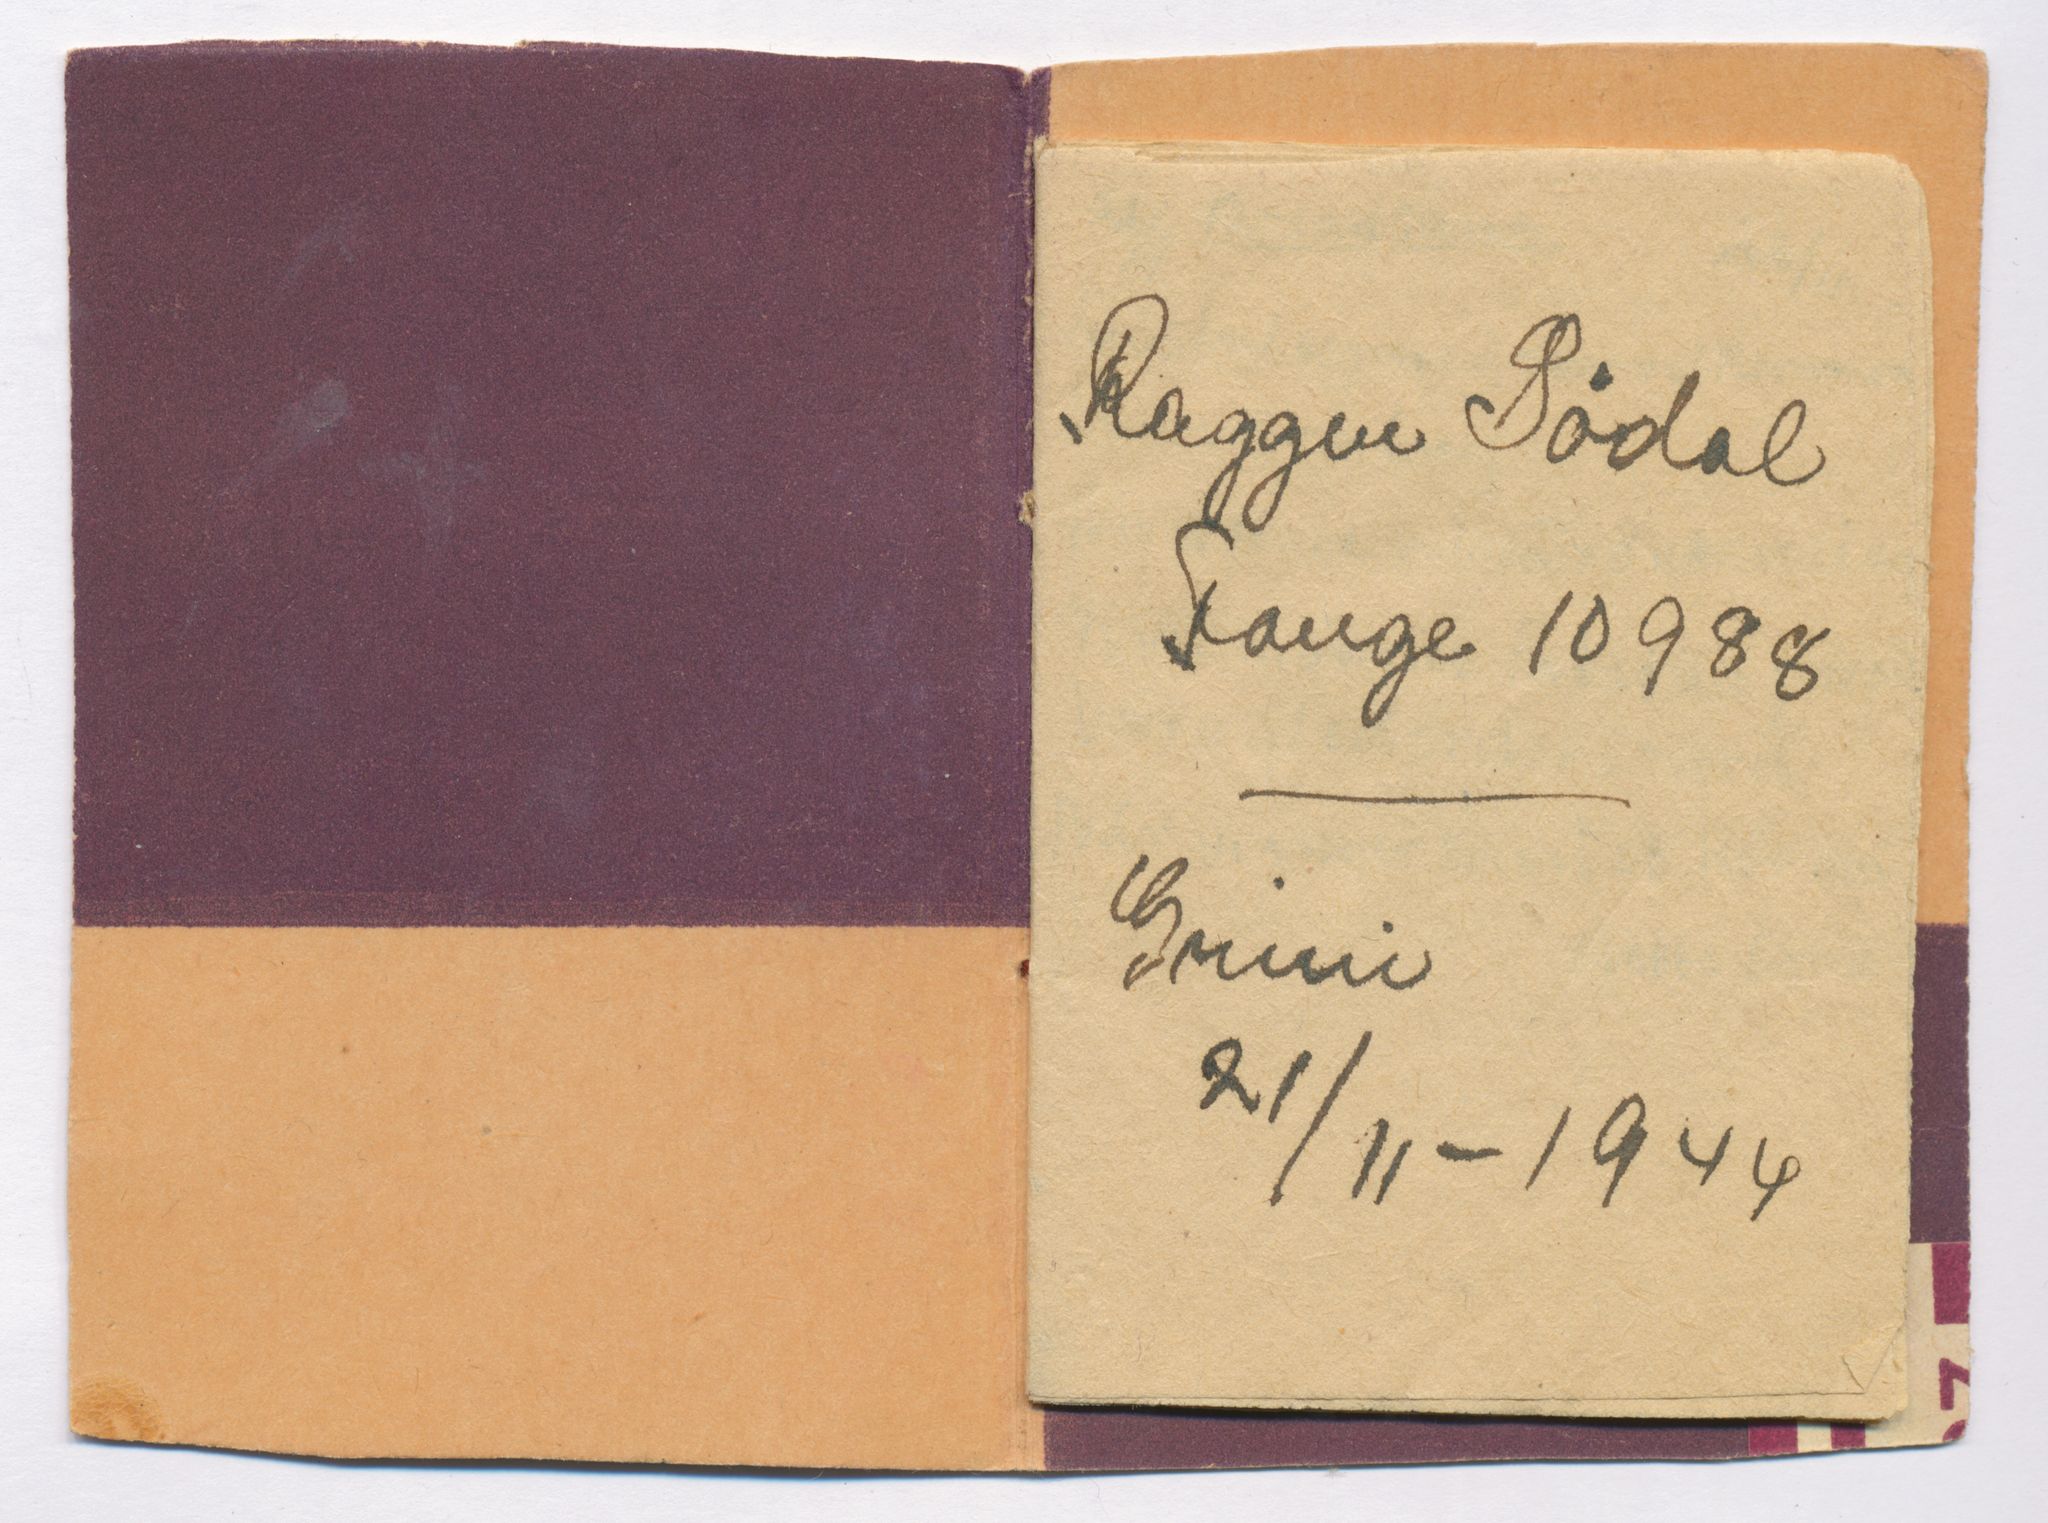 Raggen Södal
Fange 10988
Grini
21/11-1944